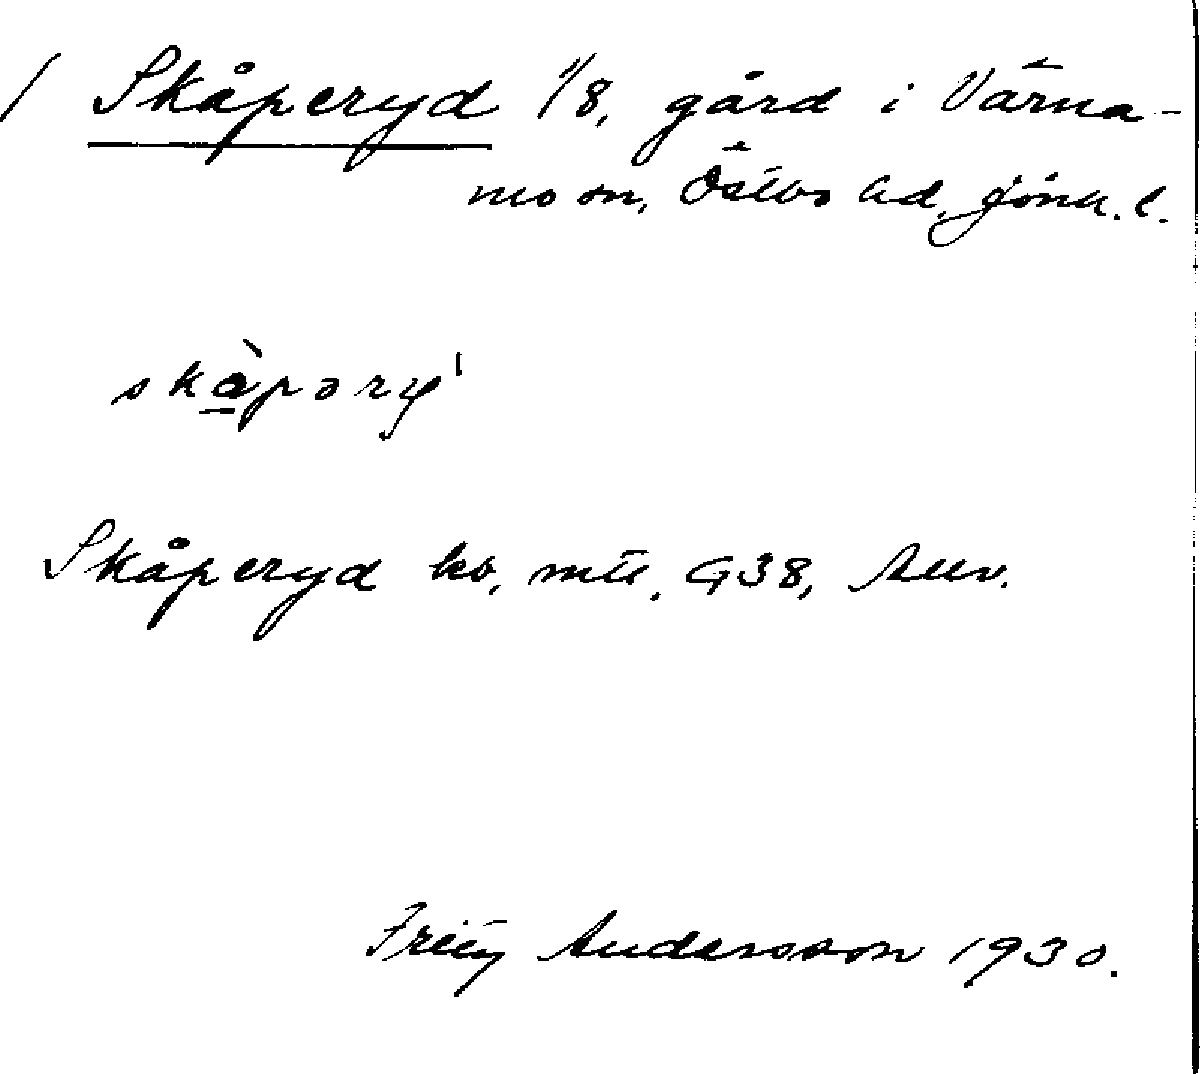 / Skåperyd 1/8, gård i Värna-
mo sn, Östbo hd, Jönk. l.
skàpəry'
Skåperyd ko, mtl. G38,
Andersson 1930.